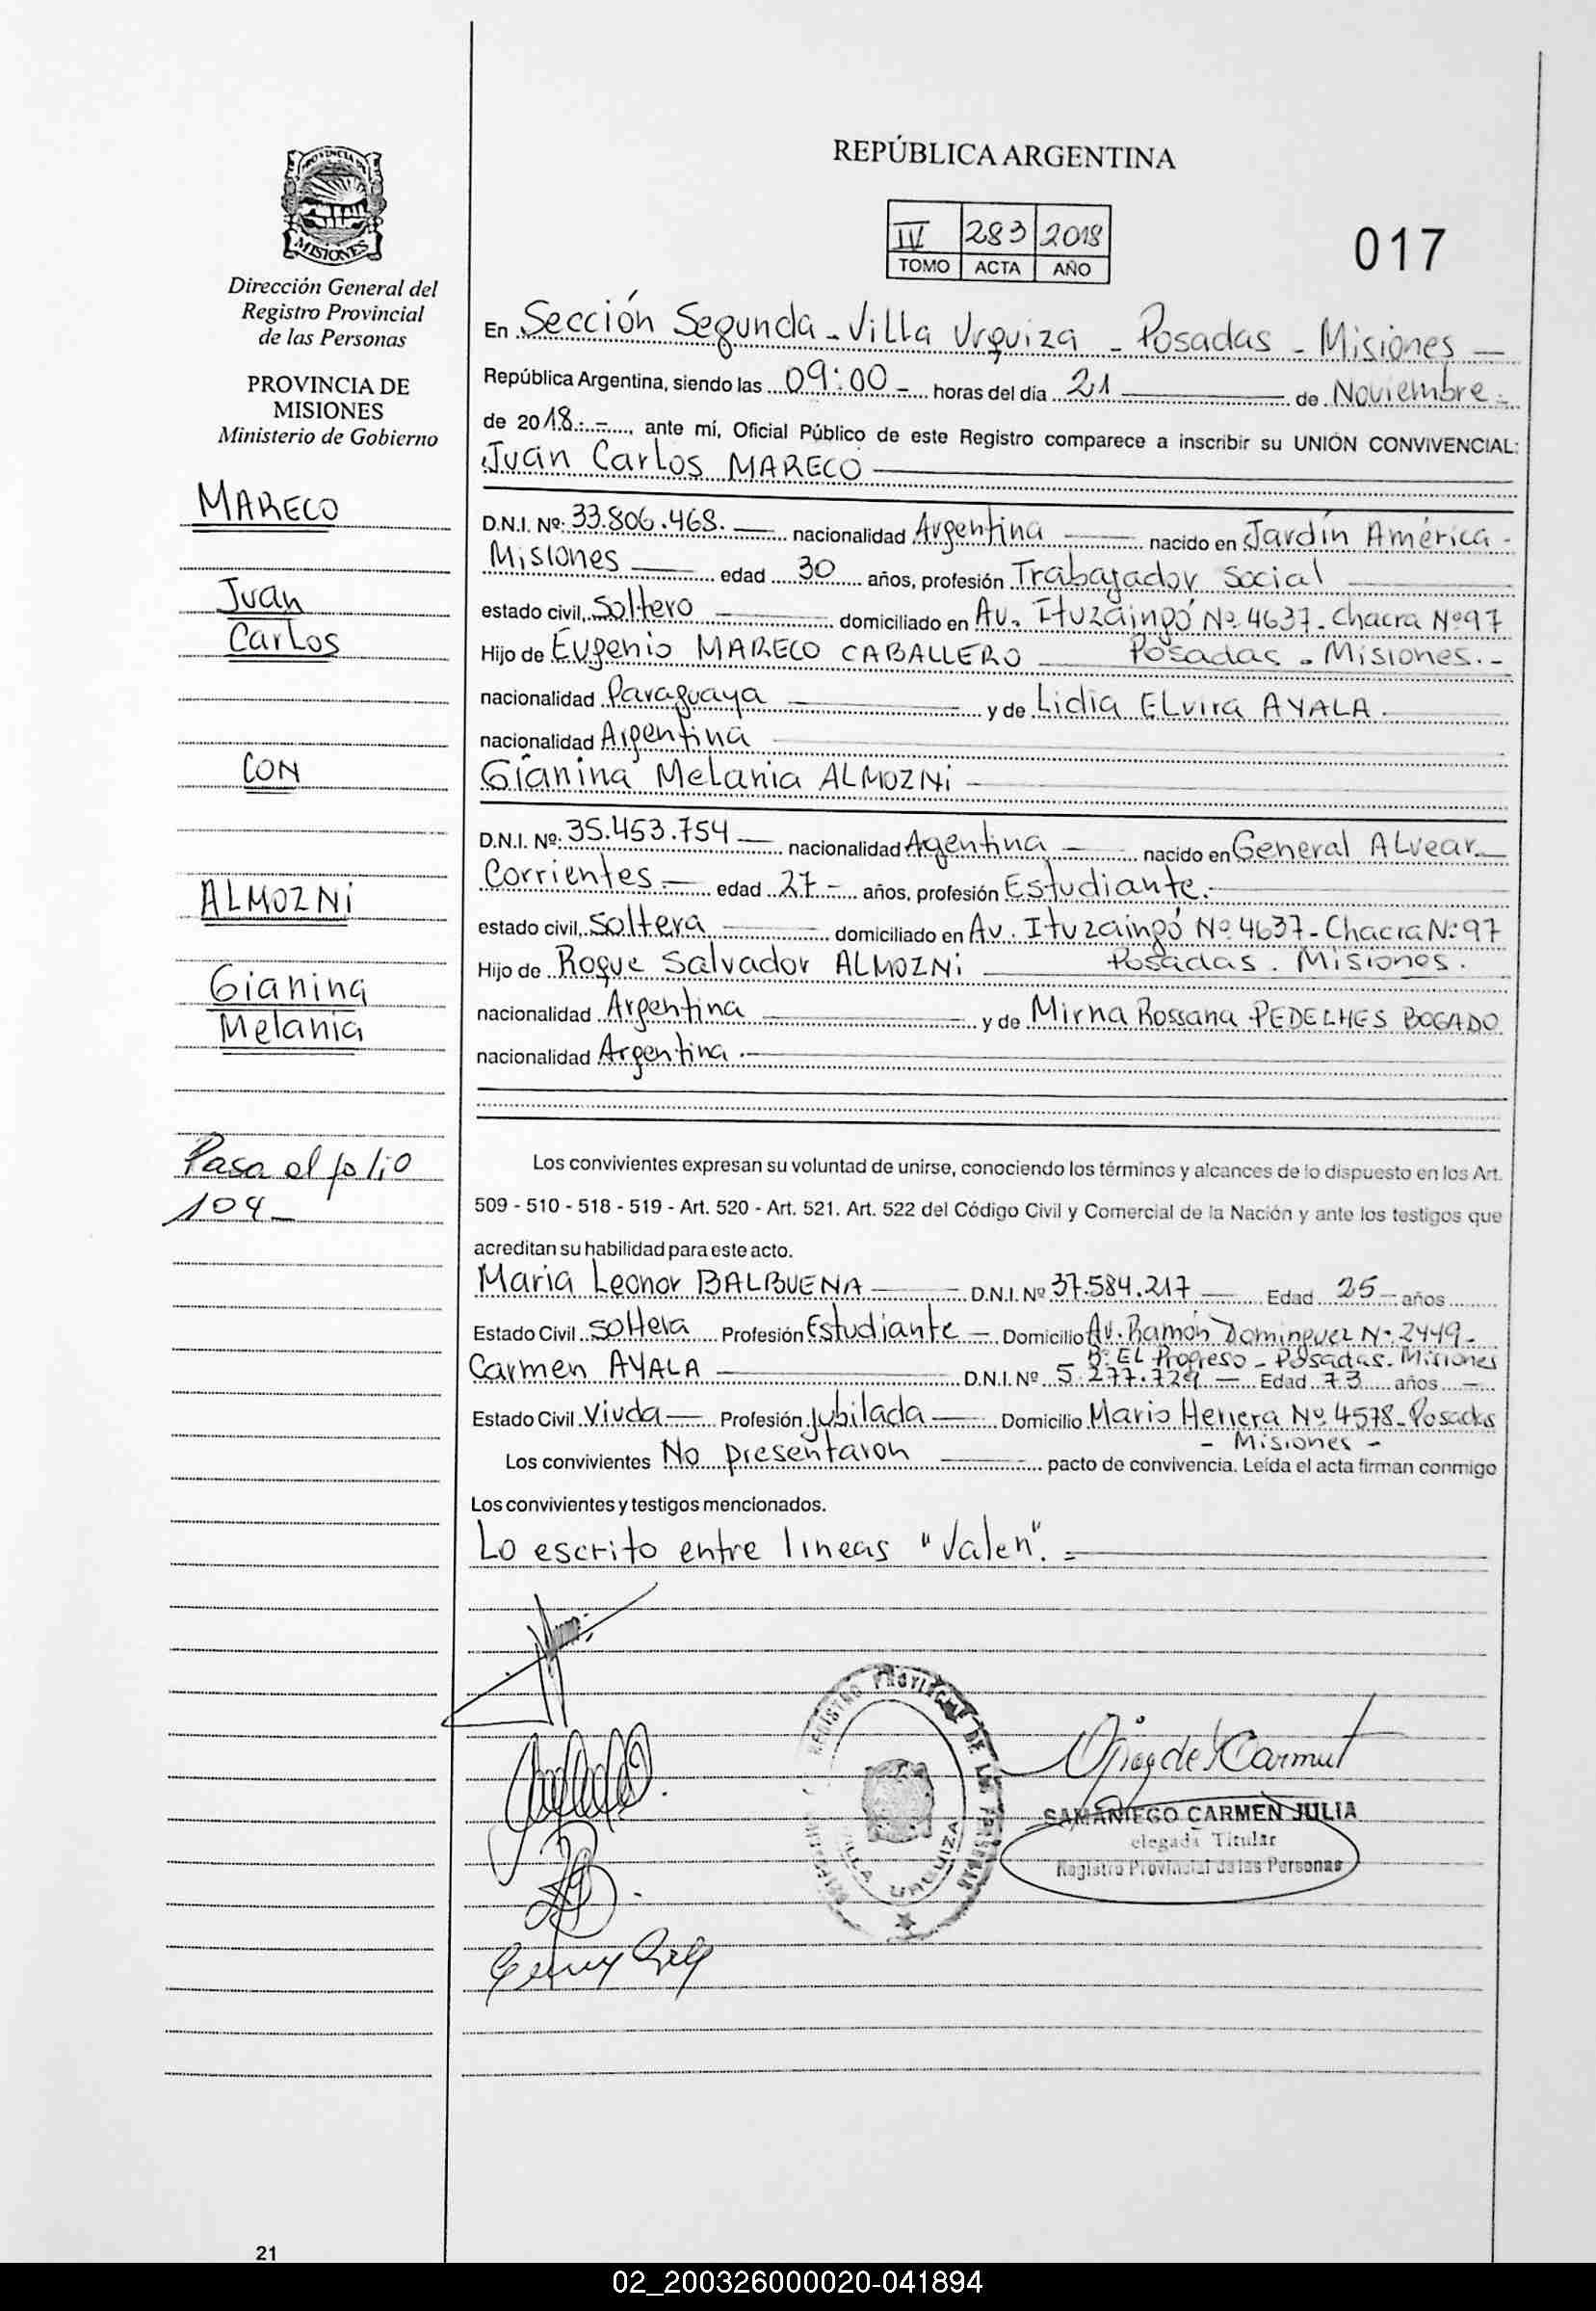 REPÚBLICA ARGENTINA
IV 283 2018
TOMO ACTA AÑO
017
PROVINCIA DE
MISIONES
Dirección General del
Registro Provincial
de las Personas
PROVINCIA DE
MISIONES
Ministerio de Gobierno
MARECO
Juan
Carlos
CON
ALMOZNi
Gianina
Melania
Pasa al folio
104-
En Sección Segunda - Villa Urquiza - Posadas - Misiones -
República Argentina, siendo las 09:00 - horas del día 21 de Noviembre -
de 2018.-, ante mí, Oficial Público de este Registro comparece a inscribir su UNIÓN CONVIVENCIAL:
Juan Carlos MARECO
D.N.I. Nº: 33.806.468. nacionalidad Argentina nacido en Jardín América -
Misiones edad 30 años, profesión Trabajador Social
estado civil, Soltero domiciliado en Av. Ituzaingó Nº 4637 - Chacra Nº 97
Hijo de Eugenio MARECO CABALLERO Posadas - Misiones.-
nacionalidad Paraguaya y de Lidia Elvira AYALA
nacionalidad Argentina
Gianina Melania ALMOZNi
D.N.I. Nº: 35.453.754 nacionalidad Agentina nacido en General Alvear
Corrientes edad 27 - años, profesión Estudiante.-
estado civil, soltera domiciliado en Av. Ituzaingó Nº 4637 - Chacra N: 97
Hijo de Roque Salvador ALMOZNi Posadas. Misiones.
nacionalidad Argentina y de Mirna Rossana PEDELHES BOGADO
nacionalidad Argentina.
Los convivientes expresan su voluntad de unirse, conociendo los términos y alcances de lo dispuesto en los Art.
509 - 510 - 518 - 519 - Art. 520 - Art. 521. Art. 522 del Código Civil y Comercial de la Nación y ante los testigos que
acreditan su habilidad para este acto.
Maria Leonor BALBUENA D.N.I. Nº 37.584.217 Edad 25 - años
Estado Civil soltera Profesión Estudiante - Domicilio Av. Ramón Dominguez N: 2449 -
Bº EL Progreso - Posadas. Misiones
Carmen AYALA D.N.I. Nº 5.277.729 - Edad 73 años -
Estado Civil Viuda Profesión jubilada Domicilio Mario Herrera Nº 4578 - Posadas
- Misiones -
Los convivientes No presentaron pacto de convivencia. Leída el acta firman conmigo
Los convivientes y testigos mencionados.
Lo escrito entre lineas "Valen".=
REGISTRO PROVINCIAL DE LAS PERSONAS
VILLA URQUIZA
SAMANIEGO CARMEN JULIA
elegada Titular
Registro Provincial de las Personas
21
02_200326000020-041894